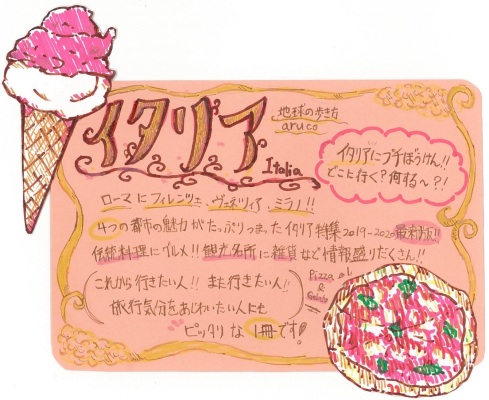 イタリア
Italia
地球の歩き方
aruco
イタリアにプチぼうけん!!
どこ行く?何する〜?!
ローマにフィレンツェ、ヴェネツィア、ミラノ!!
4つの都市の魅力がたっぷりつまったイタリア特集2019-2020最新版!!
伝統料理にグルメ!!観光名所に雑貨など情報盛りだくさん!!
これから行きたい人!!また行きたい人!!
旅行気分をあじわいたい人にも
ピッタリな1冊です!
Pizza
&
Gelato